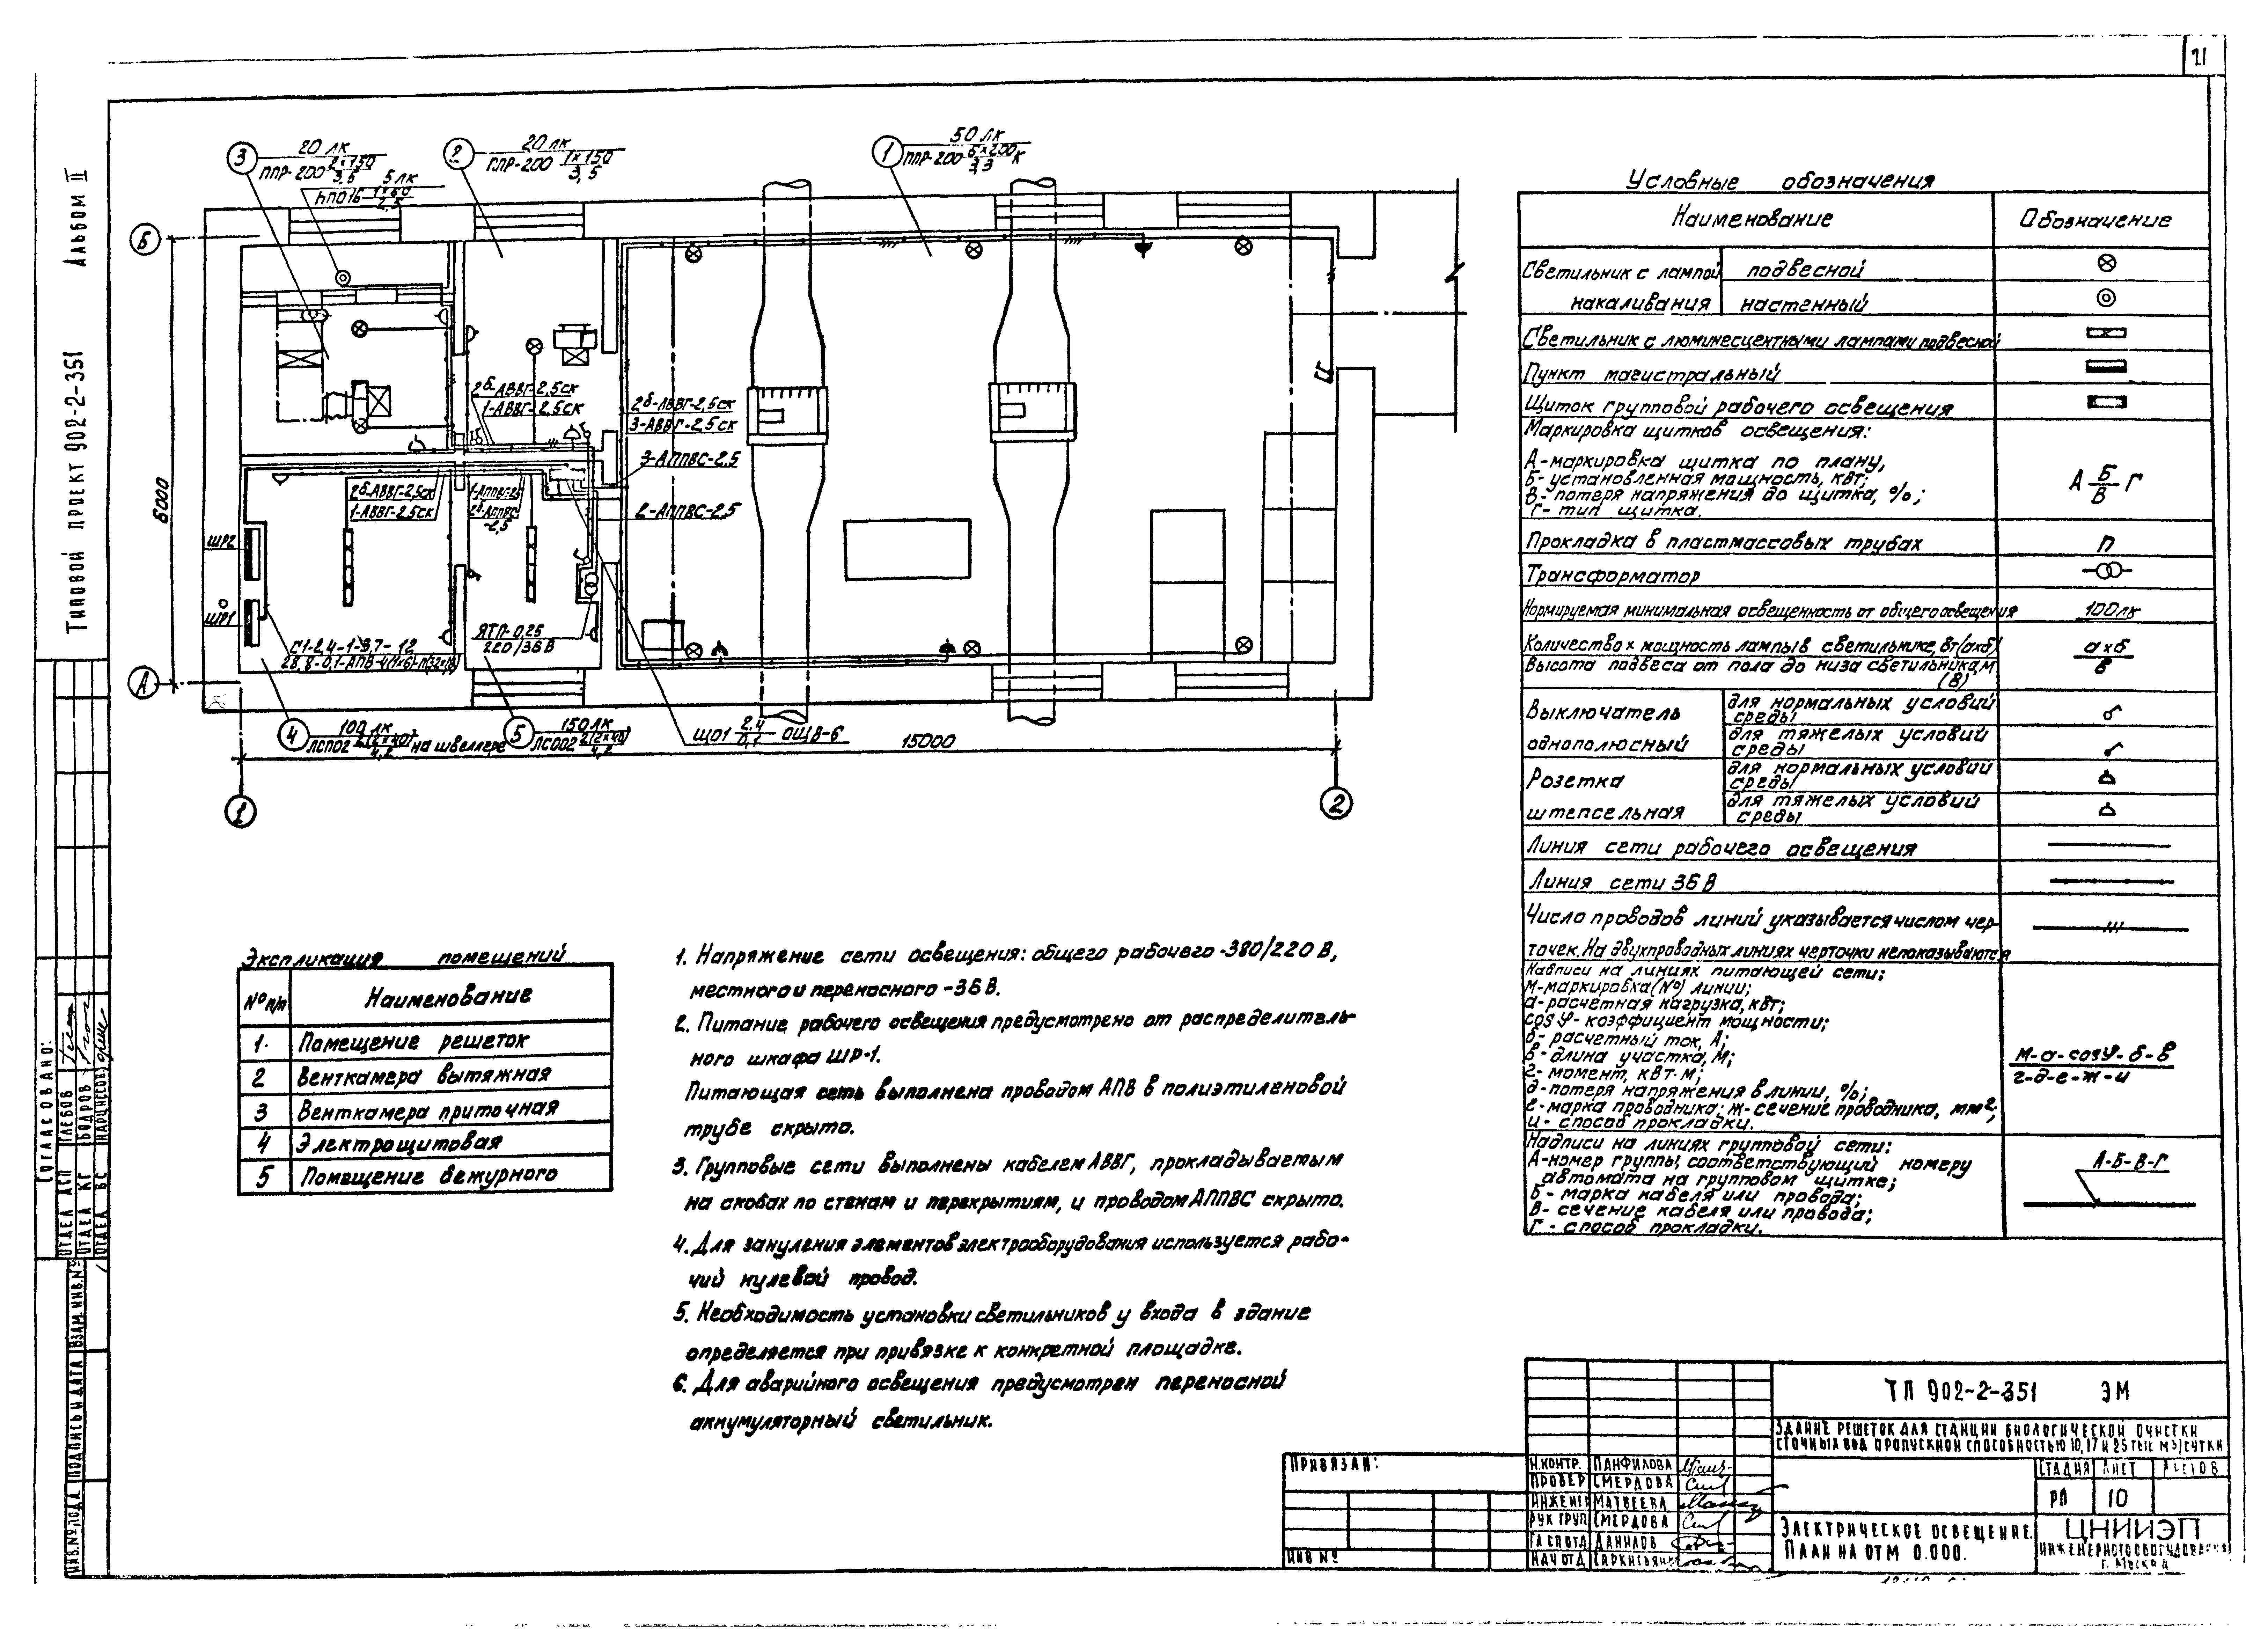 21
Альбом II
Типовой проект 902-2-351
3
20 лк
ППР-200 2×150
3,5
5 лк
НПО16 1×60
2,5
2
20 лк
ППР-200 1×150
3,5
1
50 лк
ППР-200 6×200 К
3,3
Б
6000
А
2б-АВВГ-2,5ск
1-АВВГ-2,5ск
2б-АВВГ-2,5ск
3-АВВГ-2,5ск
3-АППВС-2,5
2-АППВС-2,5
2б-АВВГ-2,5ск
1-АВВГ-2,5ск
2б-АППВС
-2,5
ШР2
ШР1
ЯТП-0,25
220/36В
4
100 лк
ЛСП02 2(2×40) на швеллере
4,2
5
150 лк
ЛСО02 2(2×40)
4,2
ЩО1 2,4 ОЩВ-6
0,1
15000
1
2
Условные обозначения
Наименование
Обозначение
Светильник с лампой накаливания
подвесной
настенный
Светильник с люминесцентными лампами подвесной
Пункт магистральный
Щиток групповой рабочего освещения
Маркировка щитков освещения:
А-маркировка щитка по плану,
Б-установленная мощность, квт;
В-потеря напряжения до щитка, %;
Г-тип щитка.
А Б Г
В
Прокладка в пластмассовых трубах
П
Трансформатор
Нормируемая минимальная освещенность от общего освещения
100 лк
Количество × мощность лампы в светильнике, Вт/(а×б)
Высота подвеса от пола до низа светильника, м
(в)
а×б
в
Выключатель
однополюсный
для нормальных условий
среды
для тяжелых условий
среды
Розетка
штепсельная
для нормальных условий
среды
для тяжелых условий
среды
Линия сети рабочего освещения
Линия сети 36 В
Число проводов линий указывается числом чер-
точек. На двухпроводных линиях черточки непоказываются
Надписи на линиях питающей сети:
М-маркировка (№) линии;
а-расчетная нагрузка, квт;
cosφ-коэффициент мощности;
б-расчетный ток, А;
в-длина участка, м;
г-момент, квт·м;
д-потеря напряжения в линии, %;
е-марка проводника; ж-сечение проводника, мм²;
и-способ прокладки.
М-а-cosφ-б-в
г-д-е-ж-и
Надписи на линиях групповой сети:
А-номер группы, соответствующий номеру
автомата на групповом щитке;
Б-марка кабеля или провода;
В-сечение кабеля или провода;
Г-способ прокладки.
А-Б-В-Г
Экспликация помещений
№ п/п
Наименование
1. Помещение решеток
2 Венткамера вытяжная
3 Венткамера приточная
4 Электрощитовая
5 Помещение дежурного
1. Напряжение сети освещения: общего рабочего -380/220 В,
местного и переносного -36 В.
2. Питание рабочего освещения предусмотрено от распределитель-
ного шкафа ШР-1.
Питающая сеть выполнена проводом АПВ в полиэтиленовой
трубе скрыто.
3. Групповые сети выполнены кабелем АВВГ, прокладываемым
на скобах по стенам и перекрытиям, и проводом АППВС скрыто.
4. Для зануления элементов электрооборудования используется рабо-
чий нулевой провод.
5. Необходимость установки светильников у входа в здание
определяется при привязке к конкретной площадке.
6. Для аварийного освещения предусмотрен переносной
аккумуляторный светильник.
Согласовано:
Отдел АСП Глебов
Отдел КГ Бодров
Отдел ВС
Инв.№ подл. Подпись и дата Взам.инв.№
Привязан:
Инв №
Н.контр. Панфилова
Провер Смердова
Инженер Матвеева
Рук груп Смердова
Данилов
Нач отд
ТП 902-2-351 ЭМ
Здание решеток для станции биологической очистки
сточных вод пропускной способностью 10, 17 и 25 тыс м3/сутки
Стадия Лист Листов
РП 10
Электрическое освещение.
План на отм 0.000.
ЦНИИЭП
инженерного оборудования
г. Москва